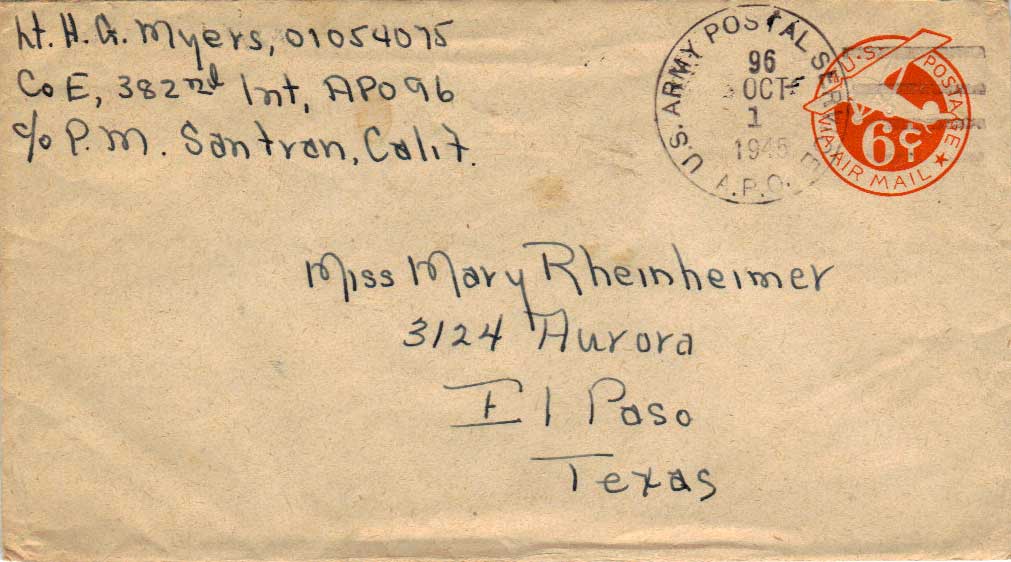 Lt. H. G. Myers, 01054075
Co E, 382nd Inf, APO 96
c/o P. M. San Fran, Calif.
U.S. ARMY POSTAL SER
96
OCT
1
1945
A.P.O.
U.S. POSTAGE
VIA AIR MAIL
6¢
Miss Mary Rheinheimer
3124 Aurora
El Paso
Texas